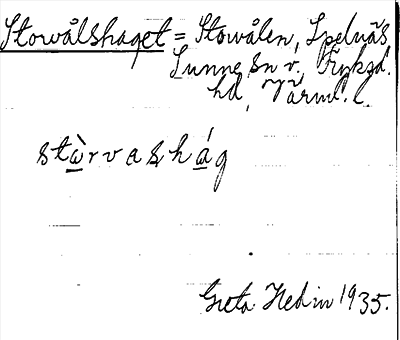 Storvålshaget = Storvålen, Spelnäs
Sunne sn v., Fryksd.
hd, Värml. l.
stὼrvashág
Greta Hedin 1935.